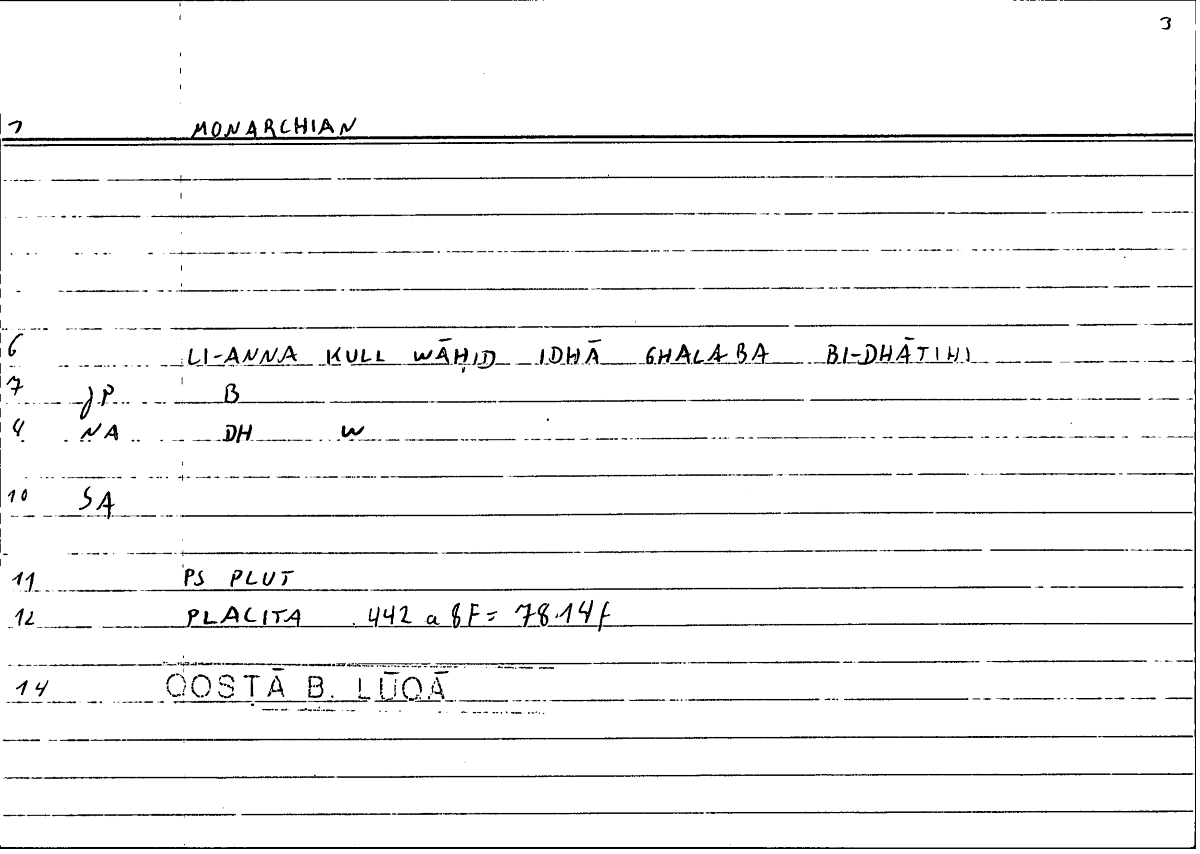 3
1 MONARCHIAN
6 LI-ANNA KULL WĀḤID IDHĀ GHALABA BI-DHĀTIHI
7 JP B
9 NA DH W
10 SA
11 PS PLUT
12 PLACITA 442 a 8F = 78.14f
14 QOSṬĀ B. LŪQĀ